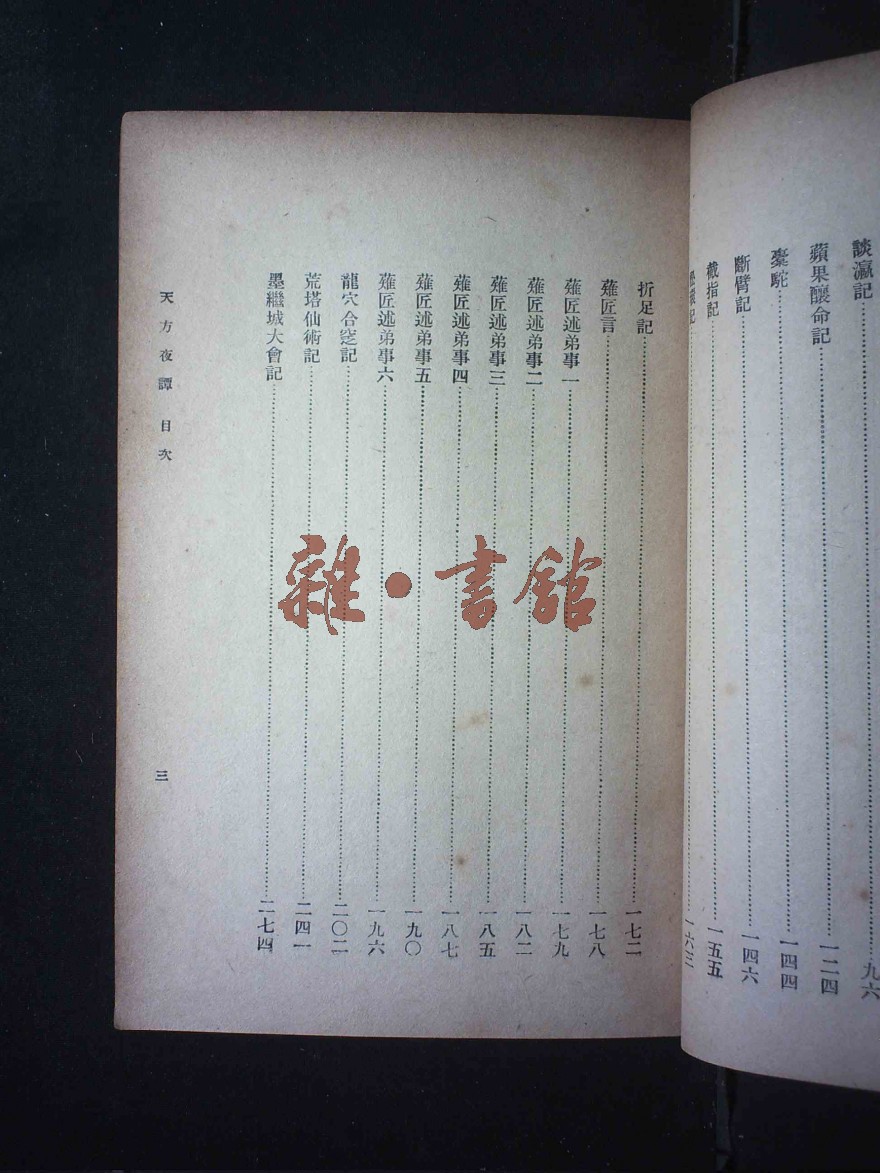 談瀛記……九六
蘋果釀命記……一二四
橐駝……一四四
斷臂記……一四六
截指記……一五五
記……一六三
折足記……一七二
薙匠言……一七八
薙匠述弟事一……一七九
薙匠述弟事二……一八二
薙匠述弟事三……一八五
薙匠述弟事四……一八七
薙匠述弟事五……一九〇
薙匠述弟事六……一九六
龍穴合窆記……二〇二
荒塔仙術記……二四一
墨繼城大會記……二七四
天方夜譚 目次 三
雜·書館